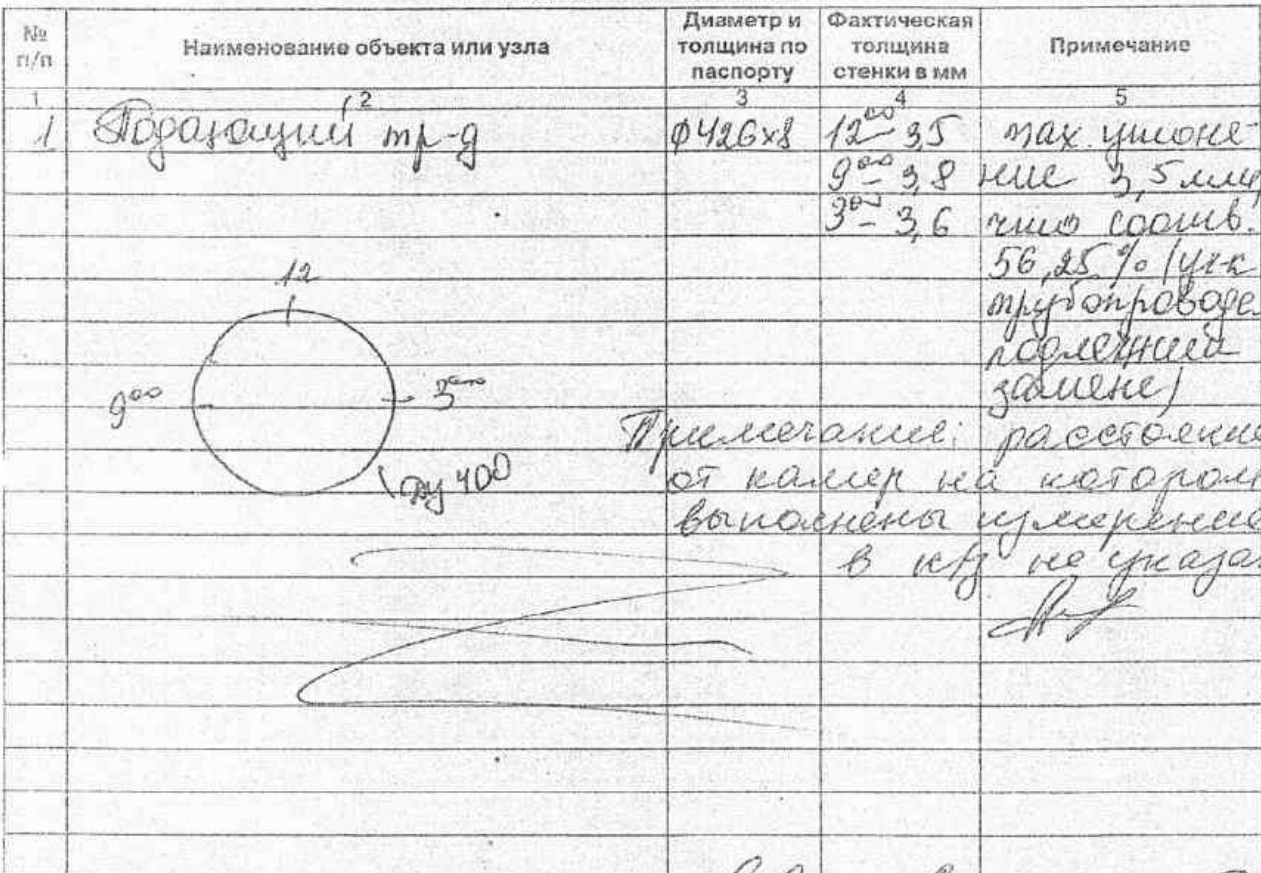 № п/п Наименование объекта или узла Диаметр и толщина по паспорту Фактическая толщина стенки в мм Примечание
1 2 3 4 5
1 Подающий тр-д ф426х8 12⁰⁰ - 3,5 max утоне-
9⁰⁰ - 3,8 ние 3,5 мм,
3⁰⁰ - 3,6 что соотв.
12 56,25 % (уч-к
трубопровода
подлежит
9⁰⁰ 3⁰⁰ замене)
Примечание: расстояние
Ду 400 от камер на котором
выполнены измерения
в не указа